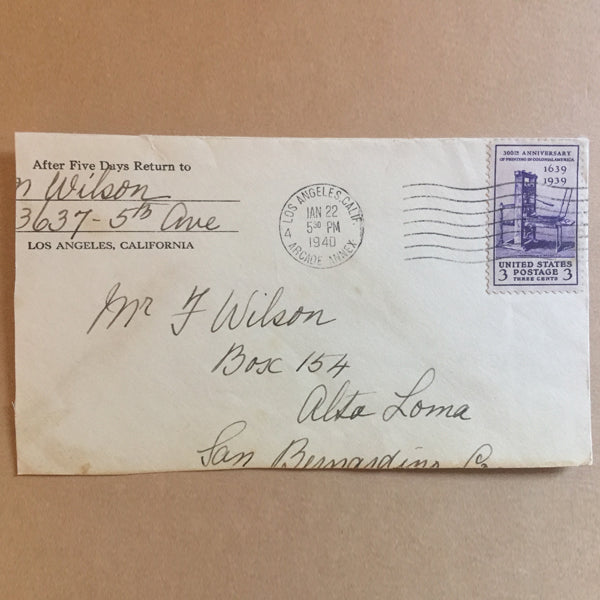 After Five Days Return to
n Wilson
3637-5th Ave
LOS ANGELES, CALIFORNIA
LOS ANGELES, CALIF.
JAN 22
5 30 PM
1940
4 ARCADE ANNEX
300TH ANNIVERSARY
OF PRINTING IN COLONIAL AMERICA
1639
1939
UNITED STATES
3 POSTAGE 3
THREE CENTS
Mr F Wilson
Box 154
Alta Loma
San Bernardino Co